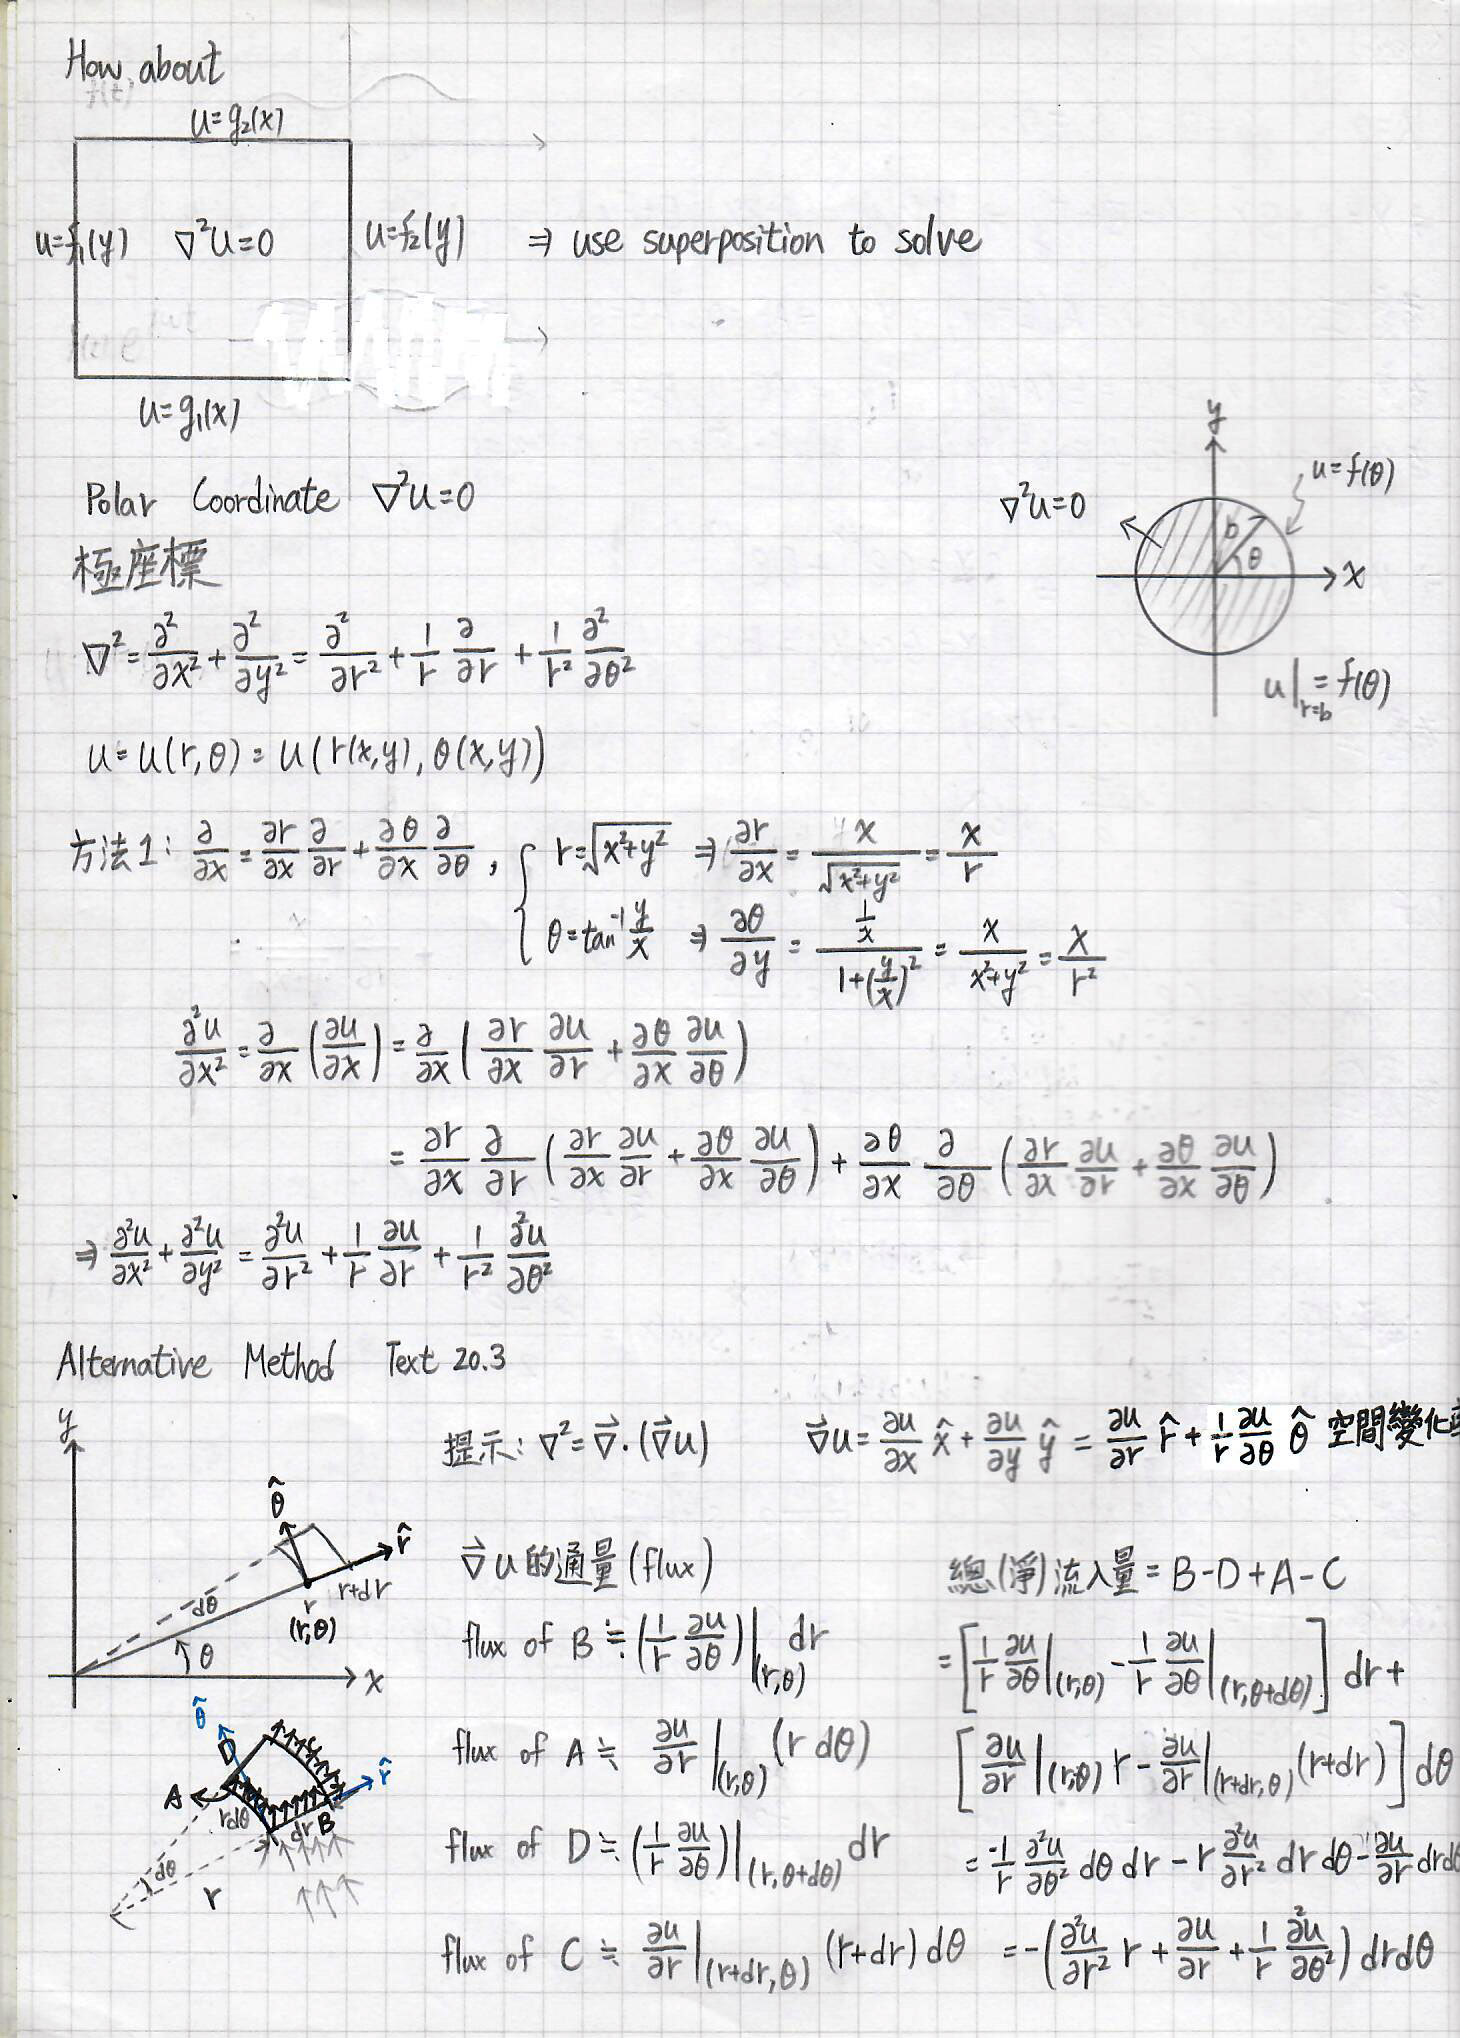 How about
u=g₂(x)
u=f₁(y) ∇²u=0 u=f₂(y) ⇒ use superposition to solve
u=g₁(x)
Polar Coordinate ∇²u=0
極座標
y
∇²u=0 u=f(θ)
b θ x
u|_{r=b} = f(θ)
∇² = ∂²/∂x² + ∂²/∂y² = ∂²/∂r² + 1/r ∂/∂r + 1/r² ∂²/∂θ²
u = u(r,θ) = u(r(x,y), θ(x,y))
方法1: ∂/∂x = ∂r/∂x ∂/∂r + ∂θ/∂x ∂/∂θ , { r=√(x²+y²) ⇒ ∂r/∂x = x/√(x²+y²) = x/r
θ=tan⁻¹ y/x ⇒ ∂θ/∂y = (1/x)/(1+(y/x)²) = x/(x²+y²) = x/r²
∂²u/∂x² = ∂/∂x (∂u/∂x) = ∂/∂x (∂r/∂x ∂u/∂r + ∂θ/∂x ∂u/∂θ)
= ∂r/∂x ∂/∂r (∂r/∂x ∂u/∂r + ∂θ/∂x ∂u/∂θ) + ∂θ/∂x ∂/∂θ (∂r/∂x ∂u/∂r + ∂θ/∂x ∂u/∂θ)
⇒ ∂²u/∂x² + ∂²u/∂y² = ∂²u/∂r² + 1/r ∂u/∂r + 1/r² ∂²u/∂θ²
Alternative Method Text 20.3
提示: ∇² = ∇⃗·(∇⃗u) ∇⃗u = ∂u/∂x x̂ + ∂u/∂y ŷ = ∂u/∂r r̂ + 1/r ∂u/∂θ θ̂ 空間變化
y
θ̂ r̂
dθ r r+dr
(r,θ)
θ
x
∇⃗u的通量(flux)
flux of B ≒ (1/r ∂u/∂θ)|_(r,θ) dr
flux of A ≒ ∂u/∂r |_(r,θ) (r dθ)
flux of D ≒ (1/r ∂u/∂θ)|_(r,θ+dθ) dr
flux of C ≒ ∂u/∂r |_(r+dr,θ) (r+dr) dθ
總(淨)流入量 = B-D+A-C
= [1/r ∂u/∂θ|_(r,θ) - 1/r ∂u/∂θ|_(r,θ+dθ)] dr +
[∂u/∂r|_(r,θ) r - ∂u/∂r|_(r+dr,θ) (r+dr)] dθ
= -1/r ∂²u/∂θ² dθ dr - r ∂²u/∂r² dr dθ - ∂u/∂r dr dθ
= -(∂²u/∂r² r + ∂u/∂r + 1/r ∂²u/∂θ²) dr dθ
θ̂
D
A r̂
rdθ dr B
dθ
r